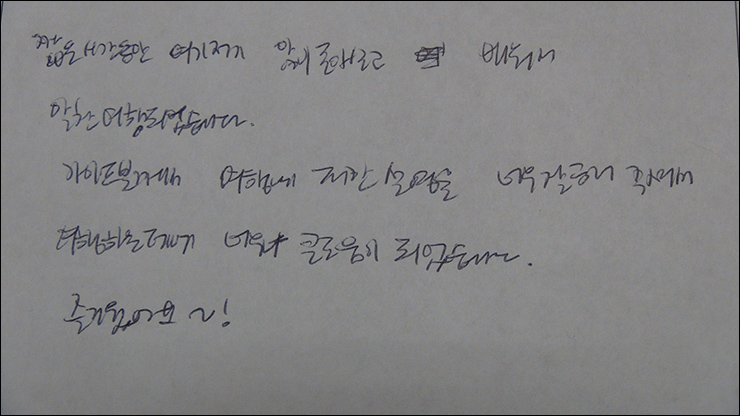 짧은 시간동안 여기저기 많이 돌아보고 배워서
알찬 여행되었습니다.
가이드분께서 여행에 대한 설명을 너무 잘해 주셔서
여행하는데 너무 큰도움이 되었습니다.
즐거웠어요 ~!